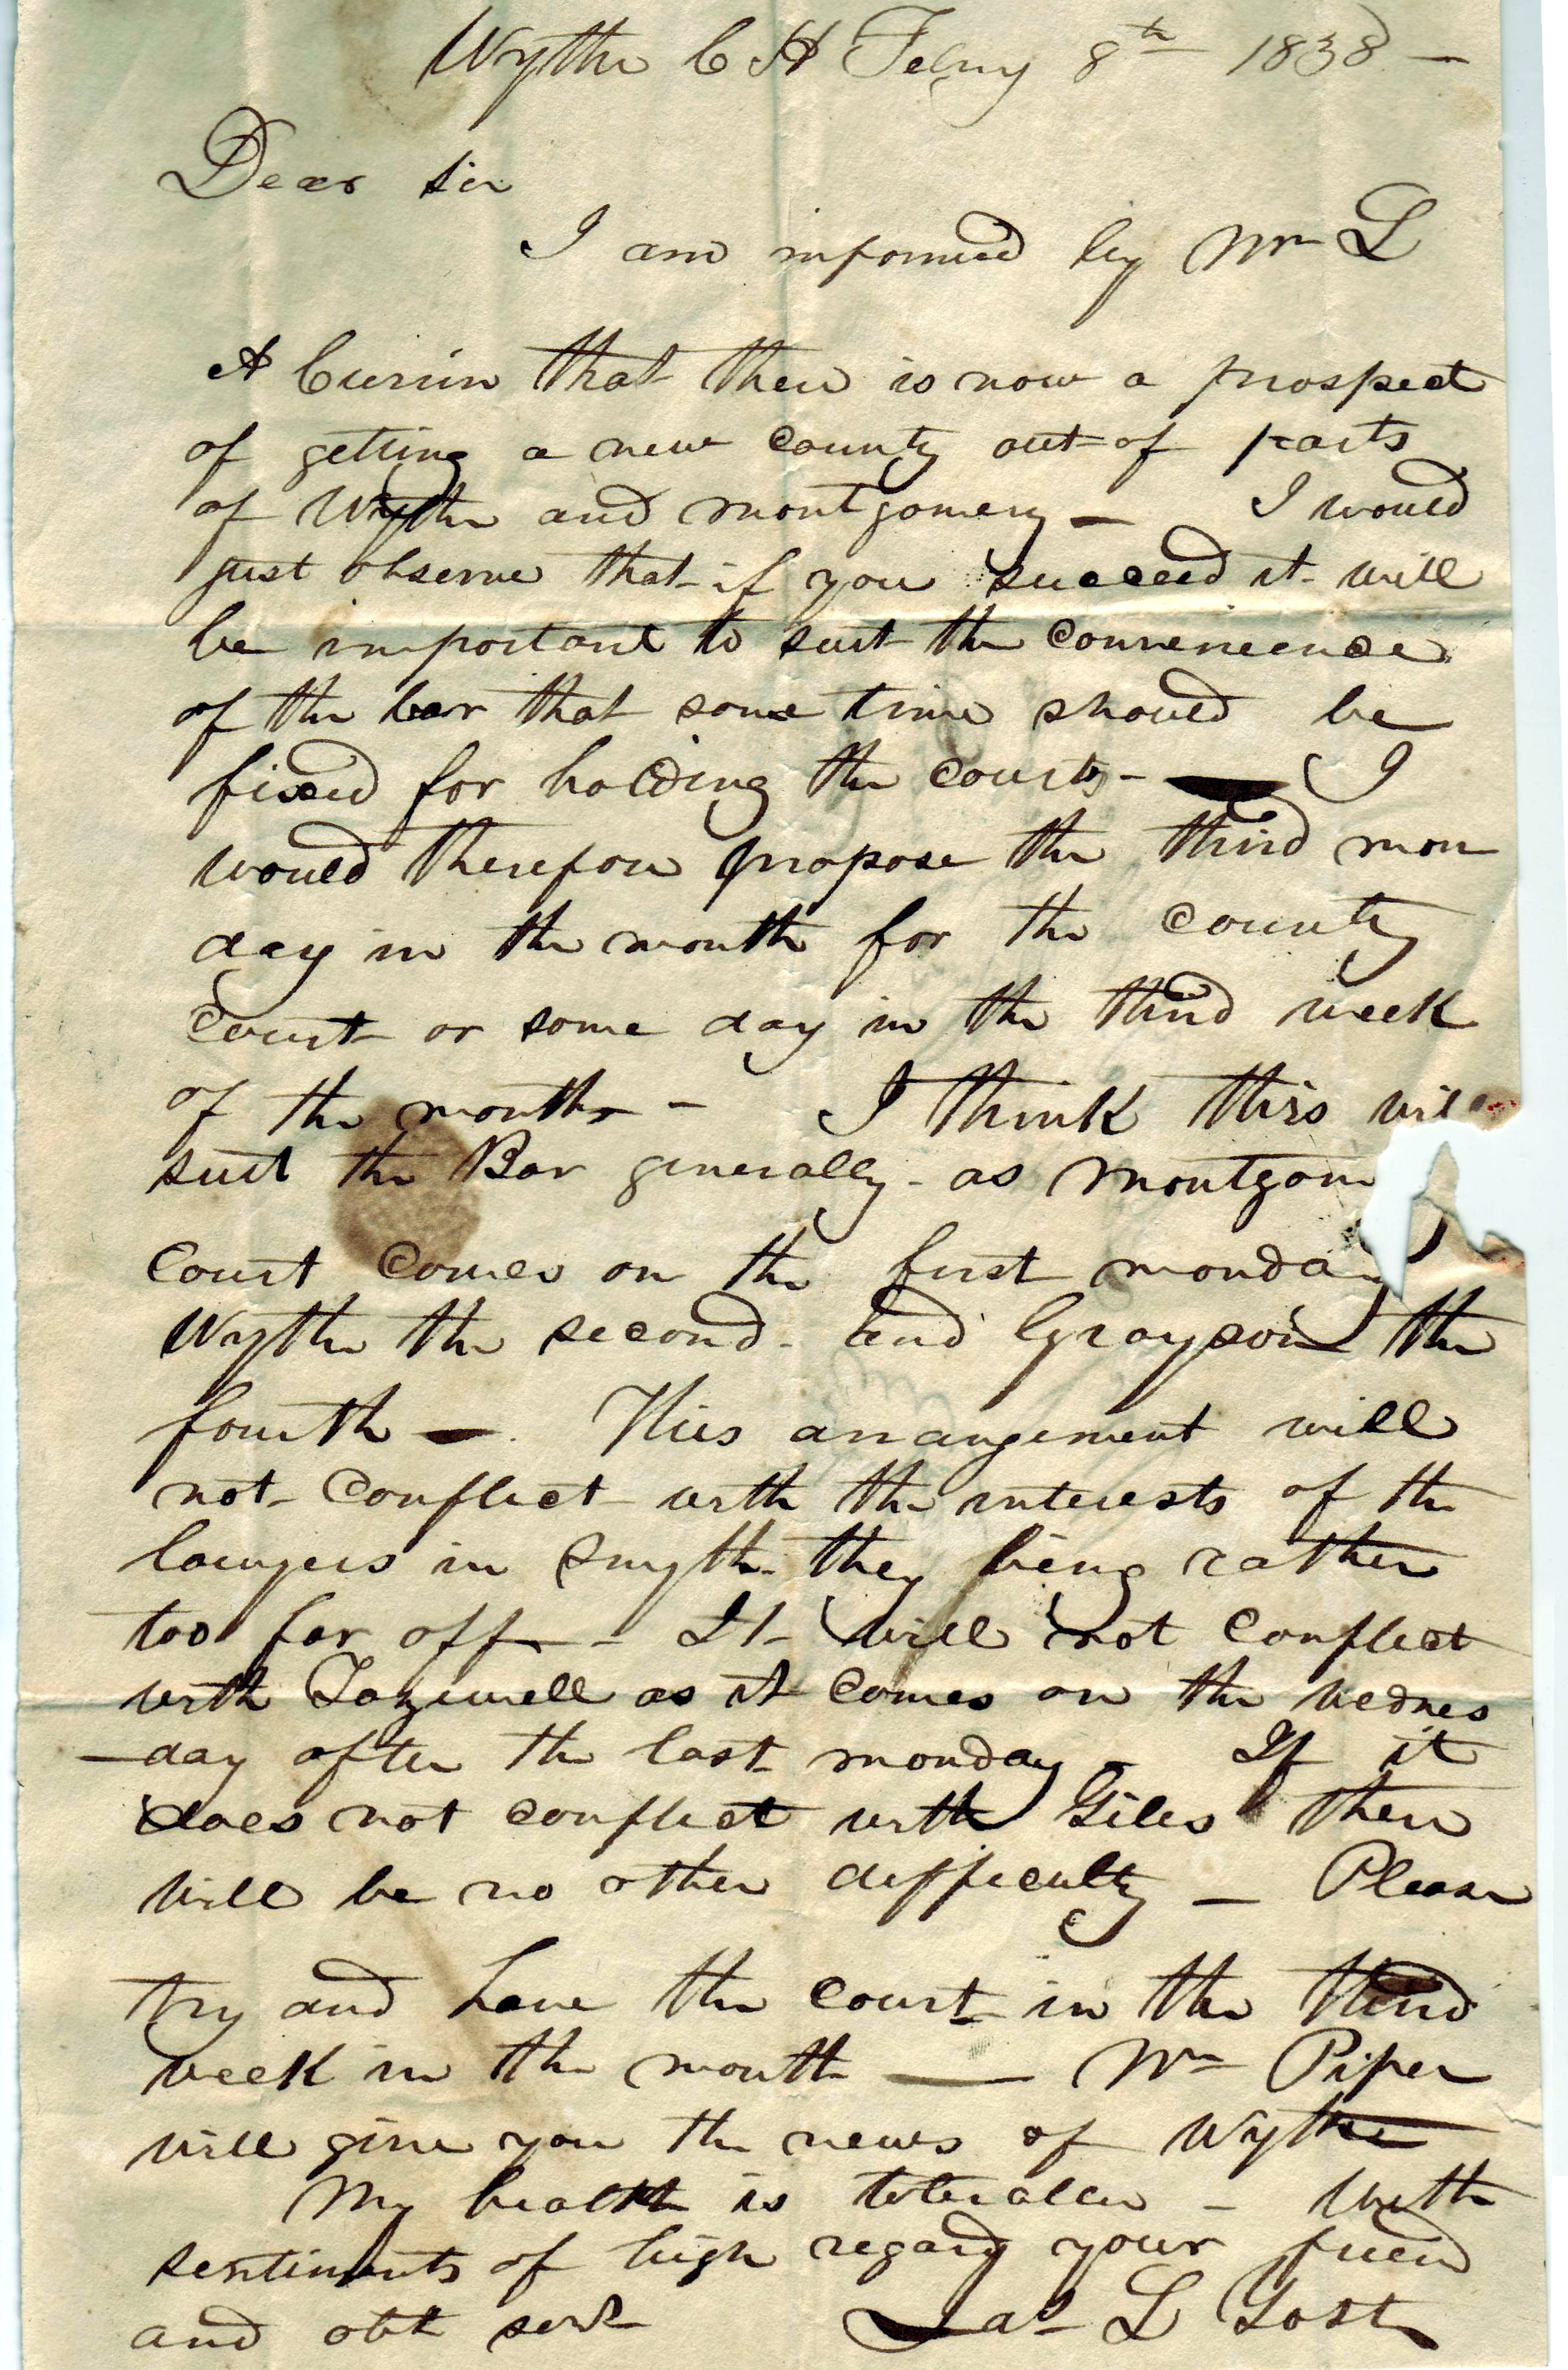 Wythe C H Febry 8th 1838 —
Dear Sir
I am informed by Mr L
A Currin that there is now a prospect
of getting a new county out of parts
of Wythe and montgomery — I would
just observe that if you succeed it will
be important to suit the convenience
of the bar that some time should be
fixed for holding the courts — I
would therefore propose the third mon
day in the month for the county
Court or some day in the third week
of the month — I think this will
suit the Bar generally - as montgom
Court comes on the first monday
Wythe the second - and Grayson the
fourth — This arrangement will
not conflict with the interests of the
lawyers in Smyth - they being rather
too far off — It will not conflict
with Tazewell as it comes on the wednes
—day after the last monday - If it
does not conflict with Giles there
will be no other difficulty — Please
try and have the court in the third
week in the month — Wm Piper
will give you the news of Wythe
My health is tolerable — With
sentiments of high regard your friend
and obt servt Jas L Yost